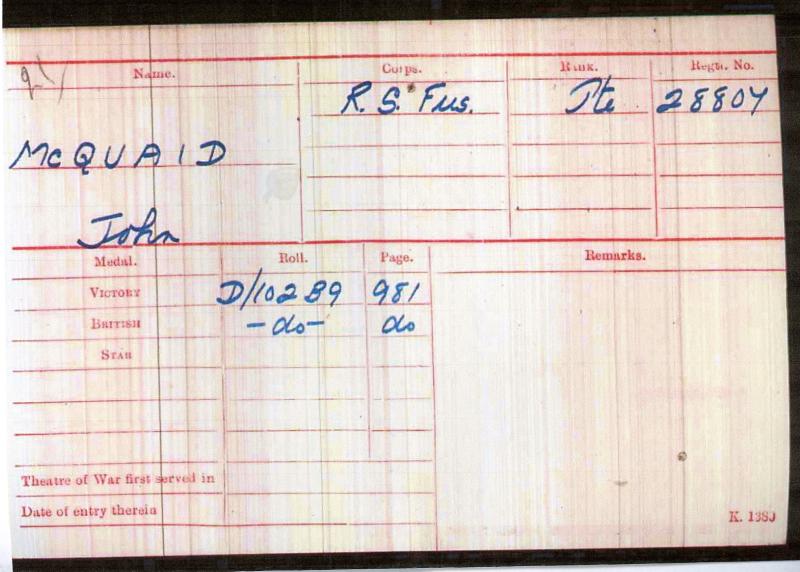 Name. Corps. Rank. Regtl. No.
R. S. Fus. Pte 28807
McQUAID
John
Medal. Roll. Page. Remarks.
VICTORY D/102 B9 981
BRITISH -do- do
STAR
Theatre of War first served in
Date of entry therein
K. 1380